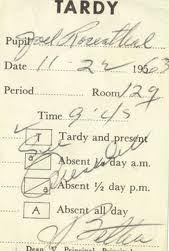 TARDY
Pupil Joel Rosenthal
Date 11-22 1963
Period Room 129
Time 9:45
T Tardy and present
a Absent ½ day a.m.
a Absent ½ day p.m.
A Absent all day